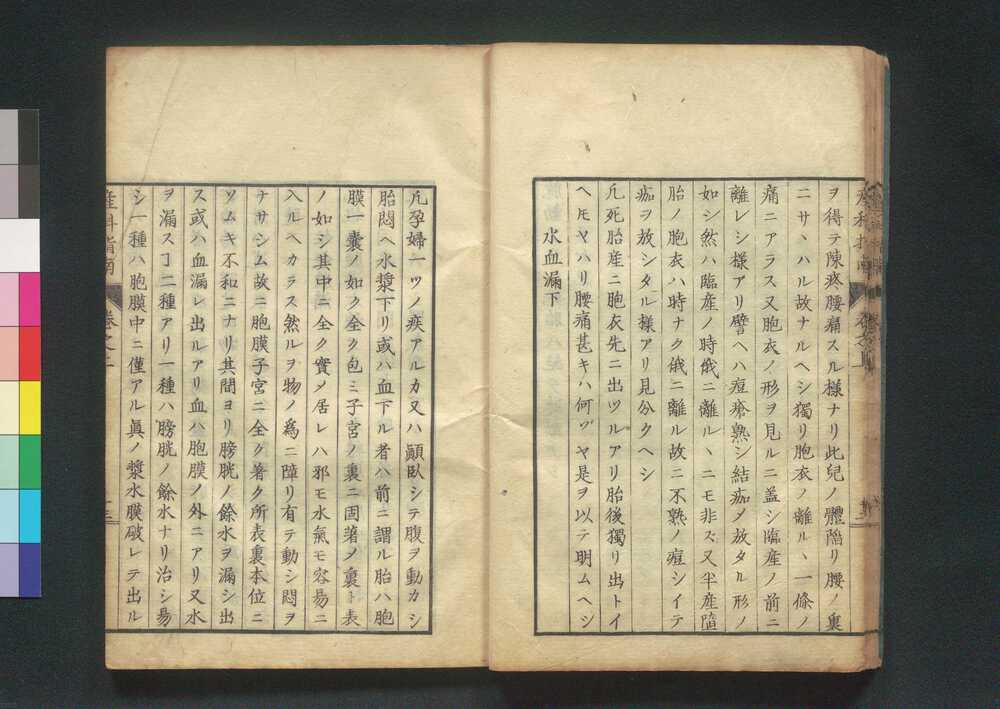 ヲ得テ陳疼腰痛スル様ナリ此兒ノ體陷リ腰ノ裏
ニサヽハル故ナルヘシ獨リ胞衣ノ離ルヽ一條ノ
痛ニアラス又胞衣ノ形ヲ見ルニ盖シ臨産ノ前ニ
離レシ様アリ譬ヘハ痘瘡熟シ結痂メ放タル形ノ
如シ然ハ臨産ノ時俄ニ離ルヽニモ非ス又半産墮
胎ノ胞衣ハ時ナク俄ニ離ル故ニ不熟ノ痘シイテ
痂ヲ放シタル様アリ見分クヘシ
凢死胎産ニ胞衣先ニ出ツルアリ胎後獨リ出トイ
ヘㇳモヤハリ腰痛甚キハ何ヅヤ是ヲ以テ明ムヘシ
水血漏下
凢孕婦一ツノ疾アルカ又ハ顚臥シテ腹ヲ動カシ
胎悶ヘ水漿下リ或ハ血下ル者ハ前ニ謂ル胎ハ胞
膜一囊ノ如ク全ク包ミ子宮ノ裏ニ固著メ裏ト表
ノ如シ其中ニ全ク實メ居レハ邪モ水氣モ容易ニ
入ルヘカラス然ルヲ物ノ爲ニ障リ有テ動シ悶ヲ
ナサシム故ニ胞膜子宮ニ全ク著ク所表裏本位ニ
ソムキ不和ニナリ其間ヨリ膀胱ノ餘水ヲ漏シ出
ス或ハ血漏レ出ルアリ血ハ胞膜ノ外ニアリ又水
ヲ漏スヿ二種アリ一種ハ膀胱ノ餘水ナリ治シ易
シ一種ハ胞膜中ニ僅アル眞ノ漿水膜破レテ出ル
産科指南
卷之二